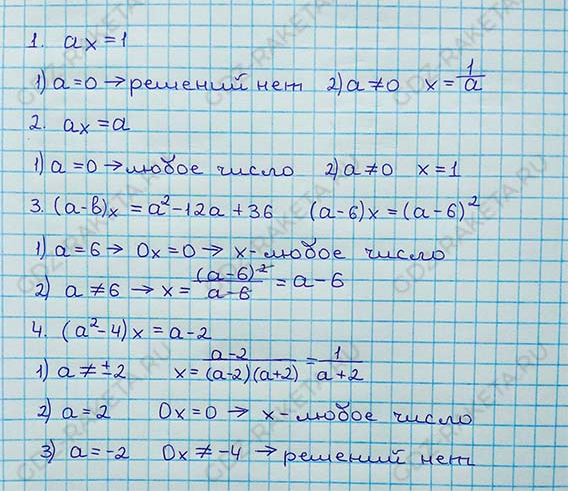 1. ax = 1
1) a = 0 → решений нет 2) a ≠ 0 x = 1/a
2. ax = a
1) a = 0 → любое число 2) a ≠ 0 x = 1
3. (a-в)x = a² - 12a + 36 (a-6)x = (a-6)²
1) a = 6 → 0x = 0 → x - любое число
2) a ≠ 6 → x = (a-6)²/a-6 = a - 6
4. (a² - 4)x = a - 2
1) a ≠ ±2 x = a-2/(a-2)(a+2) = 1/a+2
2) a = 2 0x = 0 → x - любое число
3) a = -2 0x ≠ -4 → решений нет
GDZ-RAKETA.RU